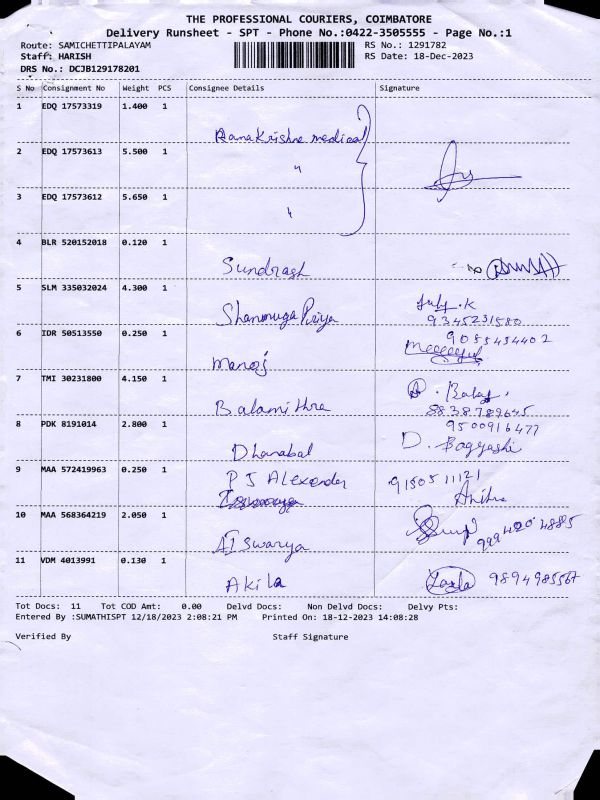 THE PROFESSIONAL COURIERS, COIMBATORE
Delivery Runsheet - SPT - Phone No.:0422-3505555 - Page No.:1
Route: SAMICHETTIPALAYAM RS No.: 1291782
Staff: HARISH RS Date: 18-Dec-2023
DRS No.: DCJB129178201
S No Consignment No Weight PCS Consignee Details Signature
1 EDQ 17573319 1.400 1
Ramakrishna medical
2 EDQ 17573613 5.500 1
"
3 EDQ 17573612 5.650 1
"
4 BLR 520152018 0.120 1
Sundrash
5 SLM 335032024 4.300 1
ShanmugaPriya 9345231580
6 IDR 50513550 0.250 1 9085434402
Manoj
7 TMI 30231800 4.150 1
Balamithra 8838789645
8 PDK 8191014 2.800 1 9500916477
Dhanabal D. Bagyashi
9 MAA 572419963 0.250 1
P J Alexander 9150511121
Anitha
10 MAA 568364219 2.050 1
AISwarya 9994204885
11 VDM 4013991 0.130 1
Akila 9894985567
Tot Docs: 11 Tot COD Amt: 0.00 Delvd Docs: Non Delvd Docs: Delvy Pts:
Entered By :SUMATHISPT 12/18/2023 2:08:21 PM Printed On: 18-12-2023 14:08:28
Verified By Staff Signature